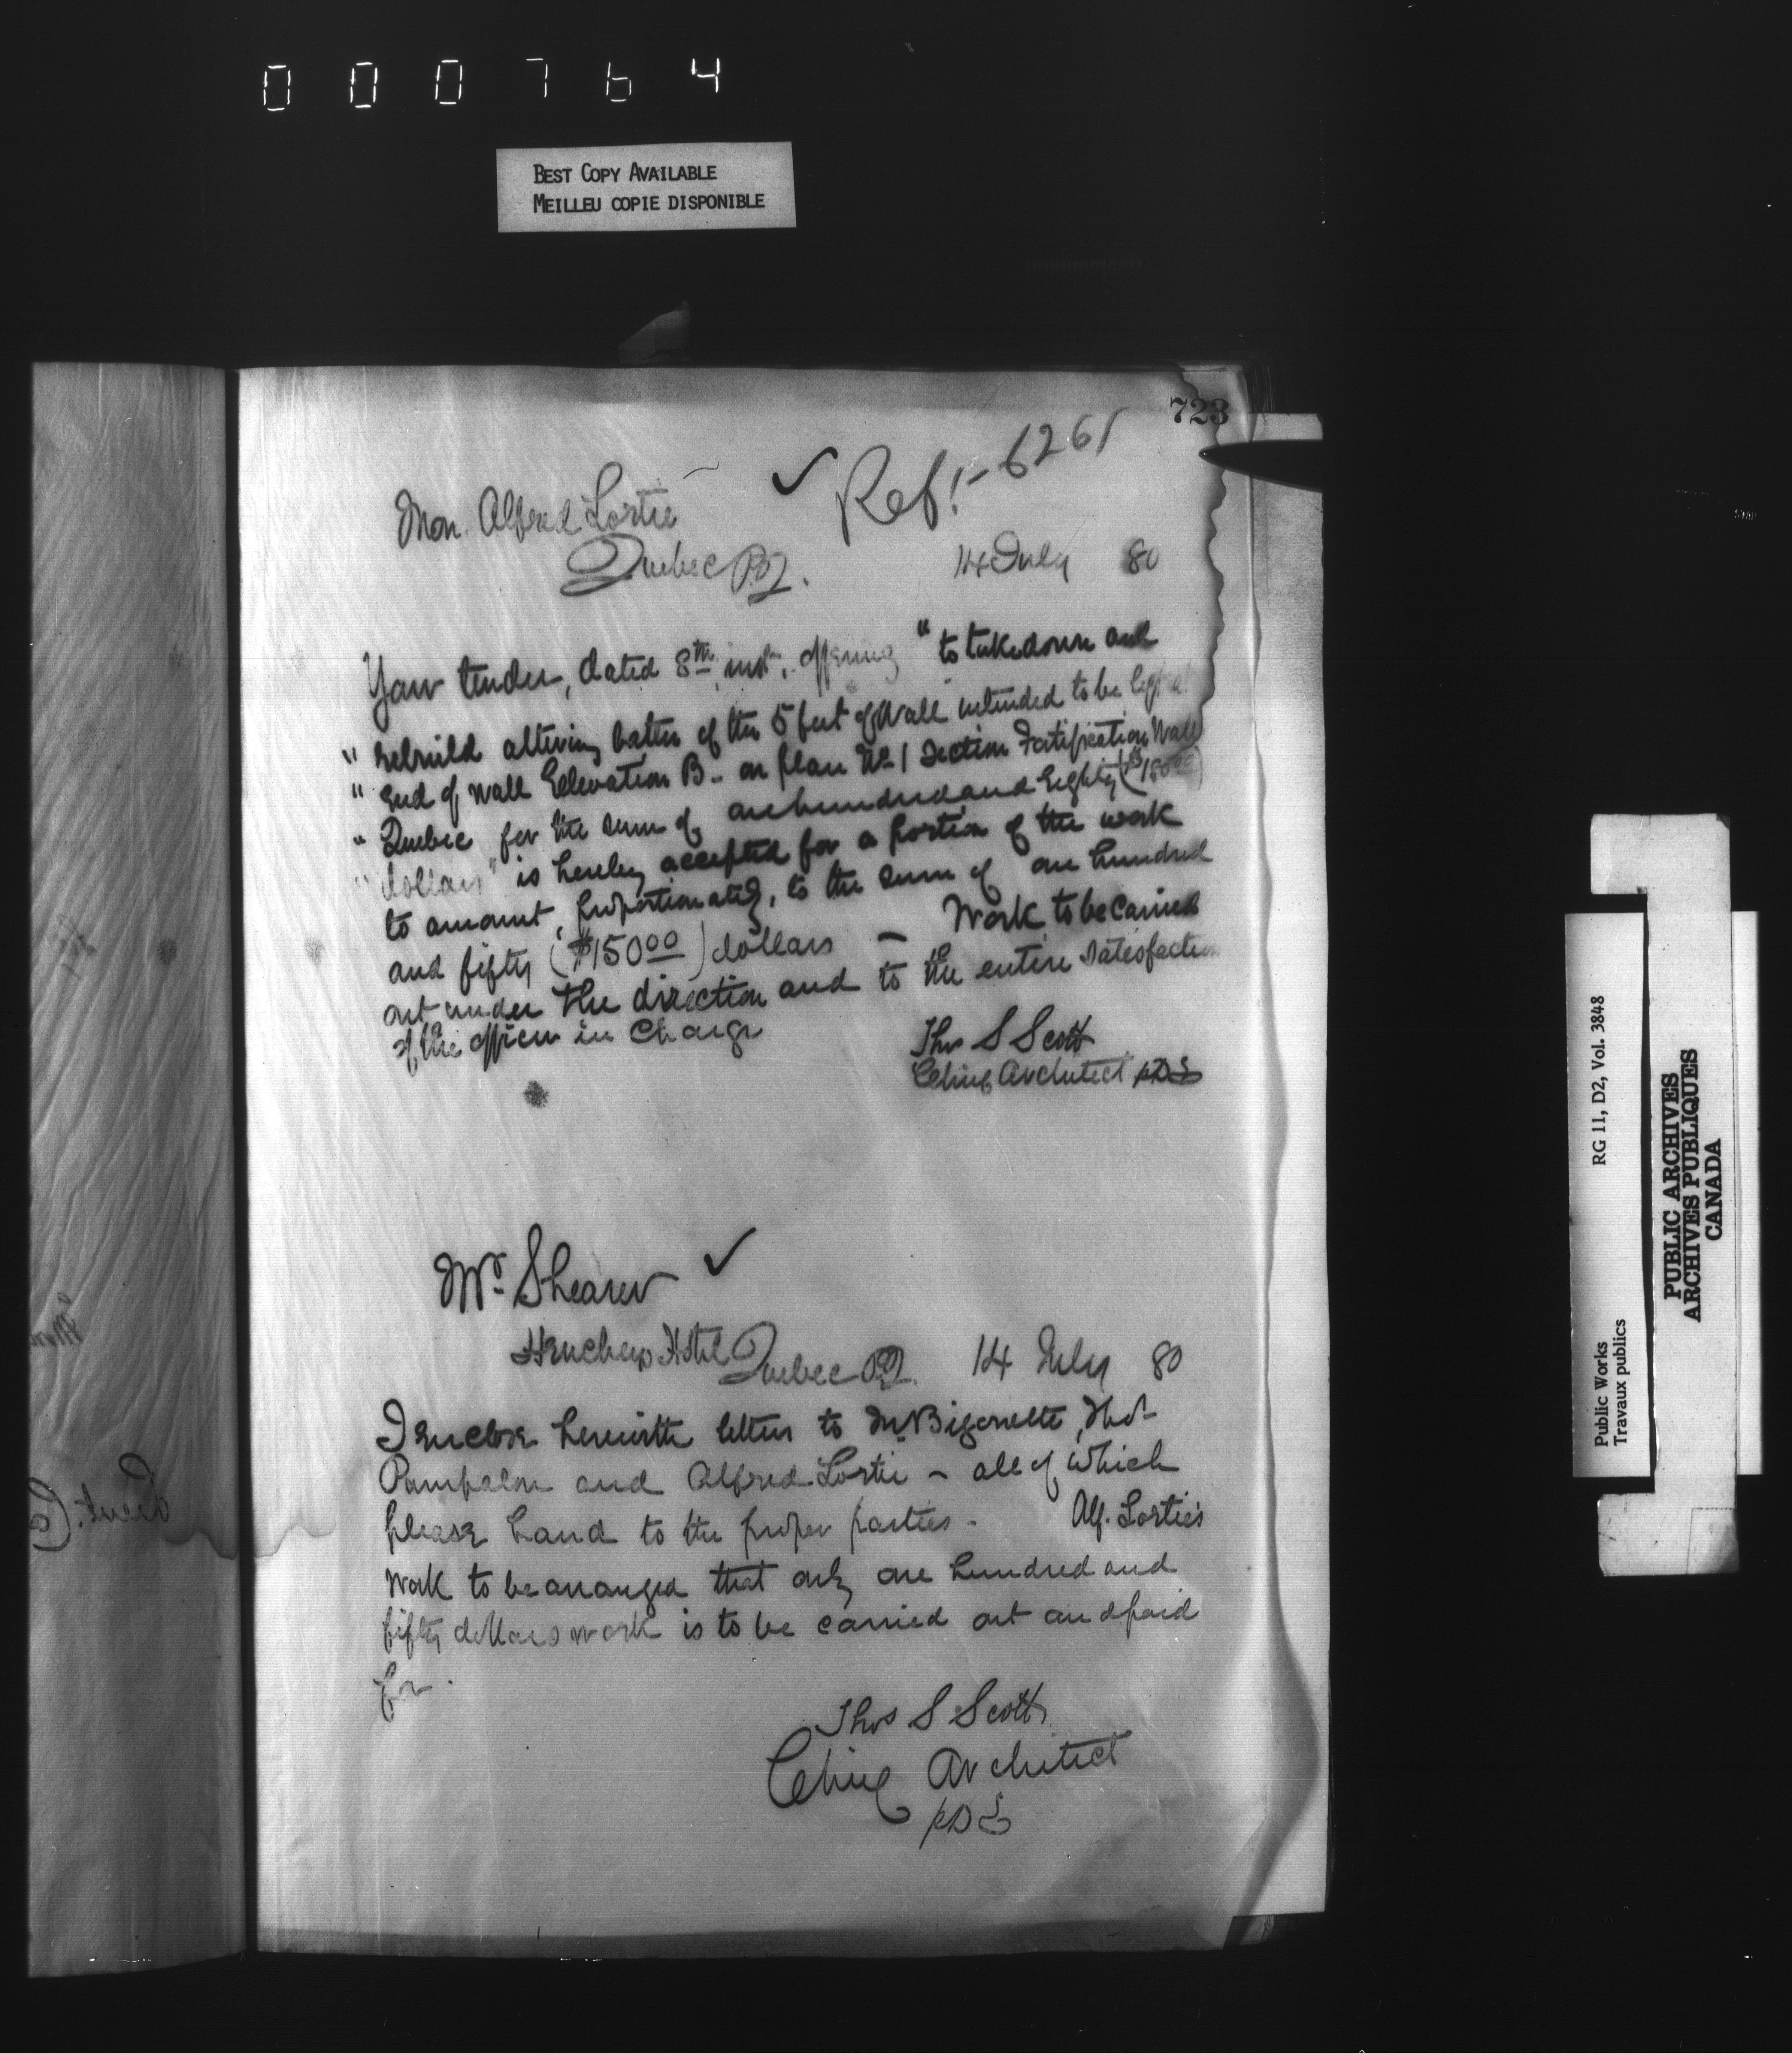 000764
BEST COPY AVAILABLE
MEILLEU COPIE DISPONIBLE
723
Ref:- 6261
Mon. Alfred Lortie
Quebec PQ.
14 July 80
Your tender, dated 8th inst, offering "to take down and
" rebuild altering batter of the 5 feet of Wall intended to be left at
" End of Wall Elevation B - on plan No 1 Section Fortification Wall
" Quebec for the sum of one hundred and Eighty ($180 00)
" dollars" is hereby accepted for a portion of the work
to amount, proportionately, to the sum of one hundred
and fifty ($150 00) dollars - Work to be carried
out under the direction and to the entire satisfaction
of the officer in Charge
Thos S Scott
Chief Architect
Mr Shearer
Hotel Quebec PQ. 14 July 80
I enclose herewith letters to Mr Bigonette, Thos
Pampalon and Alfred Lortie - all of which
please hand to the proper parties - Alf. Lortie's
Work to be arranged that only one hundred and
fifty dollars work is to be carried out and paid
for.
Thos S Scott
Chief Architect
Public Works
Travaux publics
RG 11, D2, Vol. 3848
PUBLIC ARCHIVES
ARCHIVES PUBLIQUES
CANADA